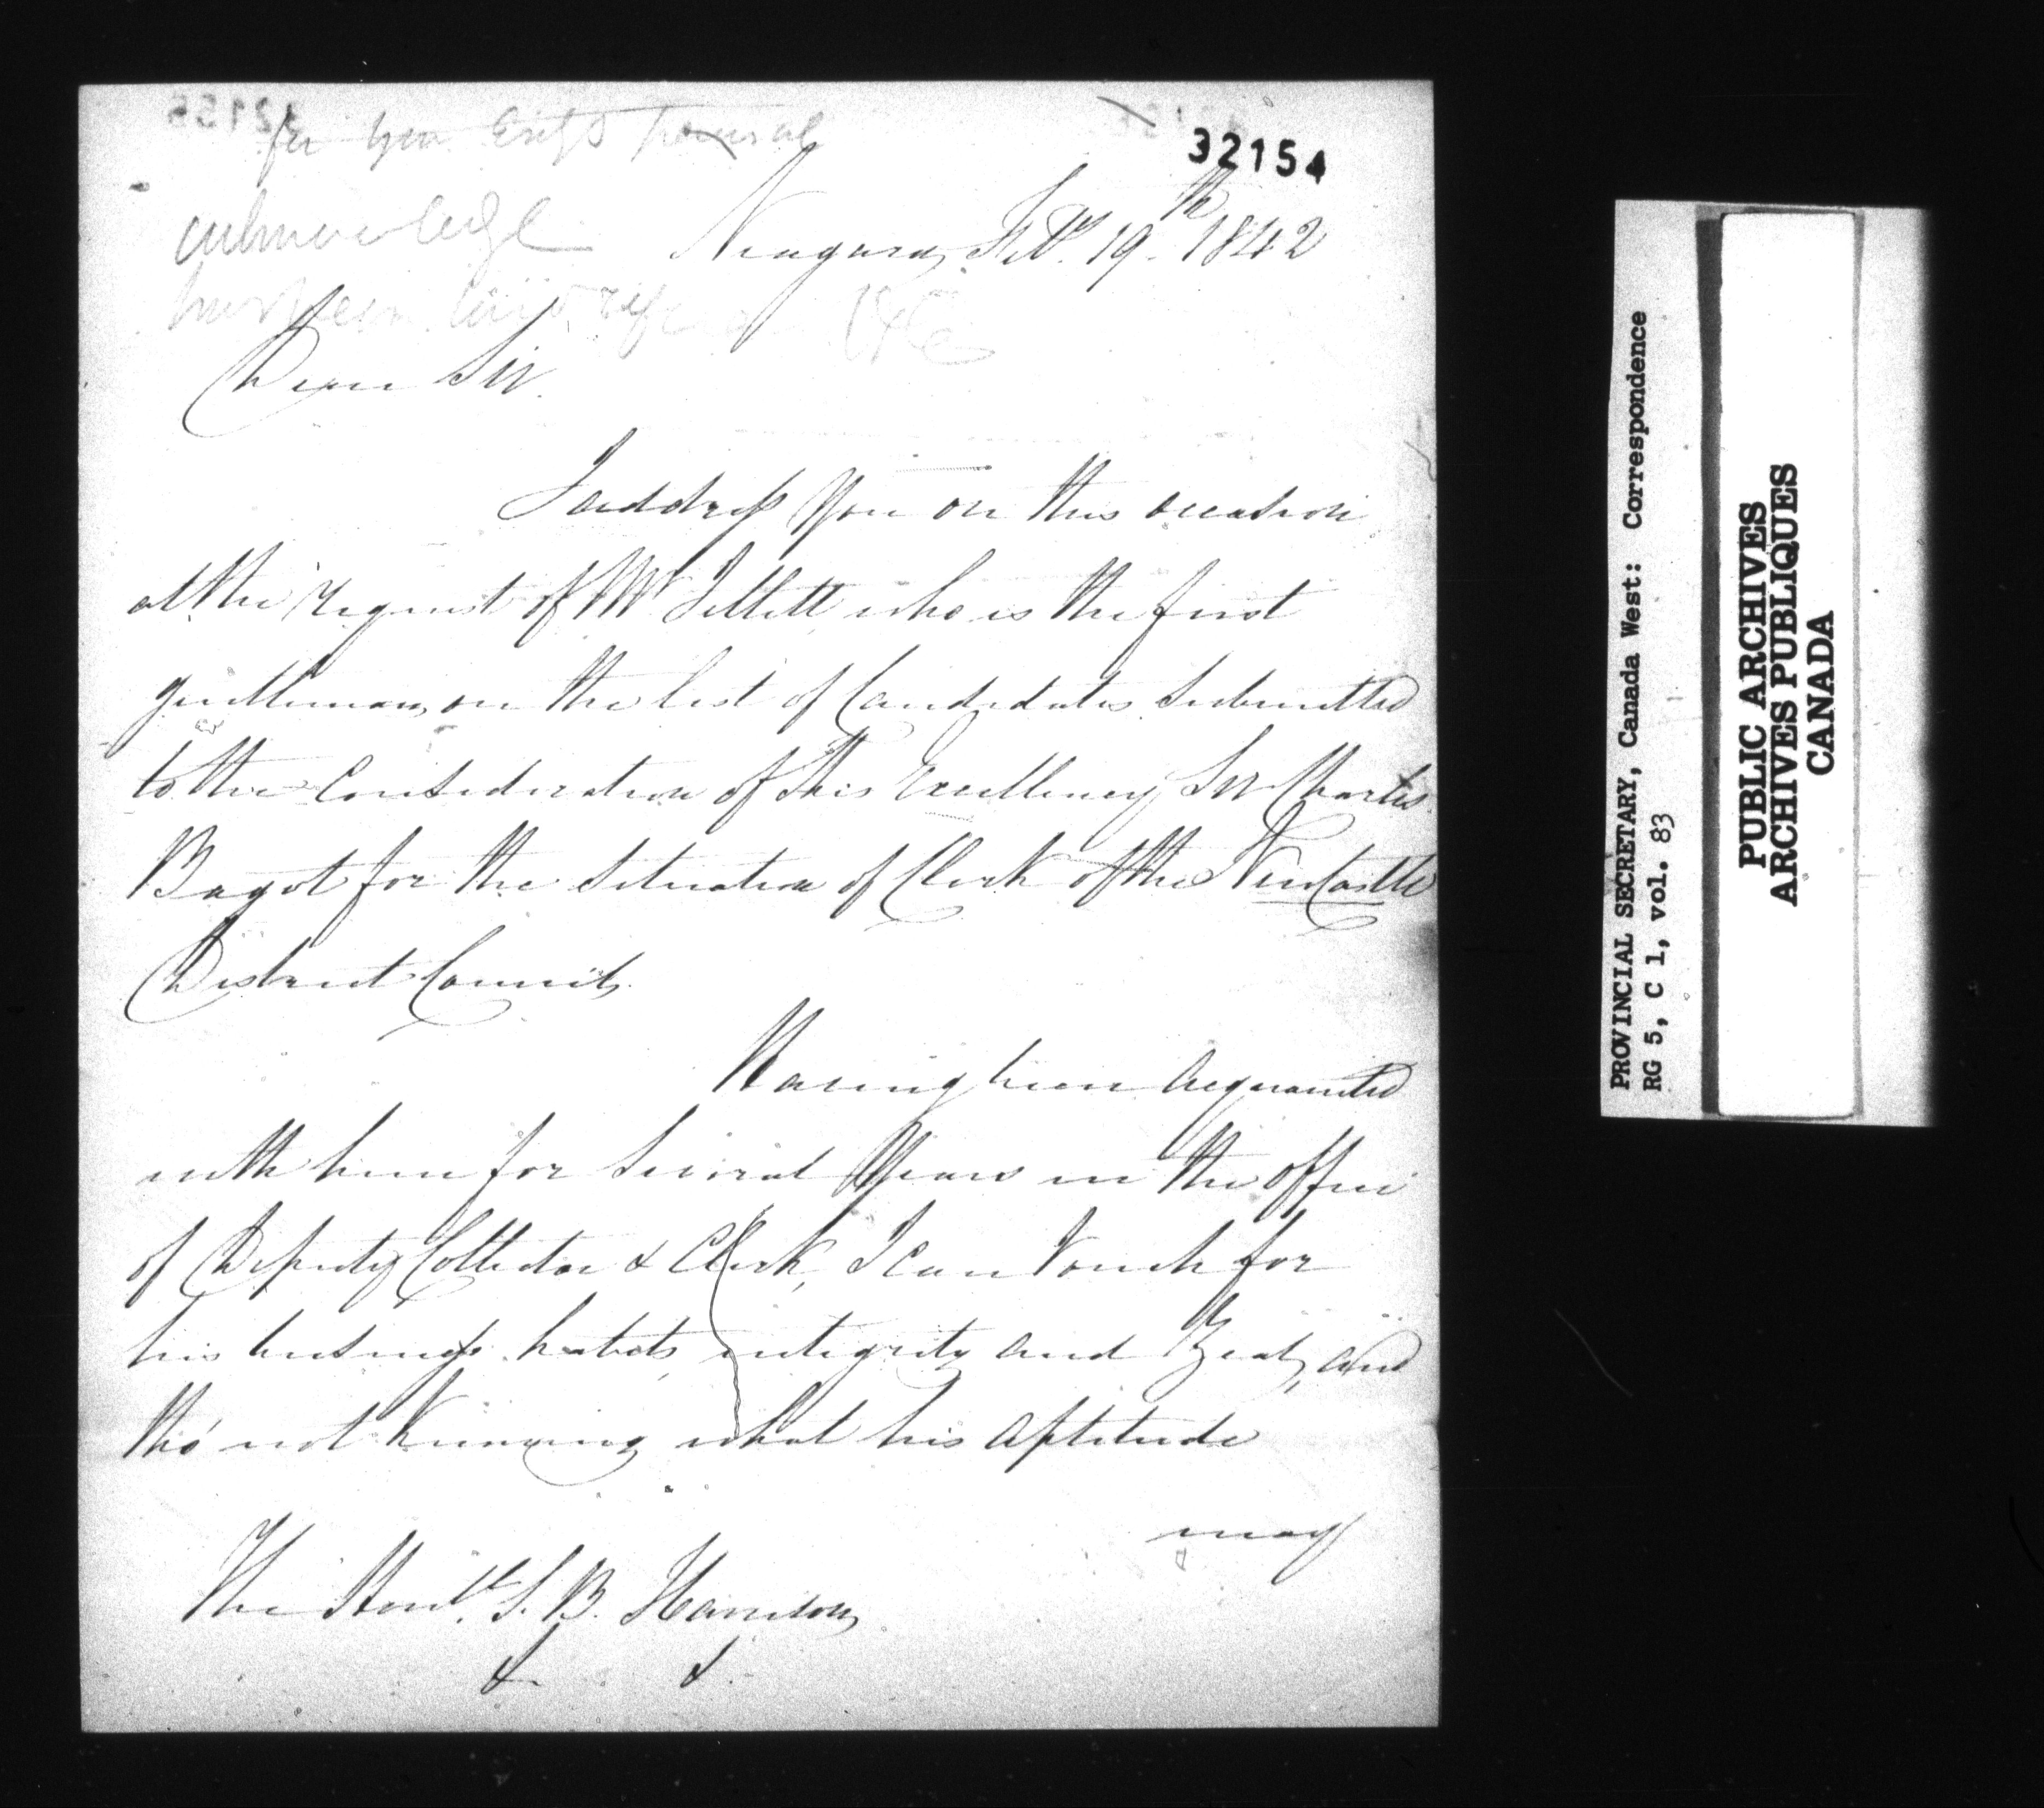 32154
for your Excy's perusal
acknowledge
Niagara, Feby. 19th. 1842
Dear Sir.
I address you on this occasion
at the request of Mr who is the first
gentleman on the list of Candidates submitted
to the Consideration of His Excellency Sir Charles
Bagot for the situation of Clerk of the NewCastle
District Council.
Having been acquainted
with him for several Years in the office
of Deputy Collector & Clerk, I can Vouch for
his business habits, integrity and Zeal, and
tho' not knowing what his aptitude
may
The Honble. S. B. Harrison
& &
PROVINCIAL SECRETARY, Canada West: Correspondence
RG 5, C 1, vol. 83
PUBLIC ARCHIVES
ARCHIVES PUBLIQUES
CANADA